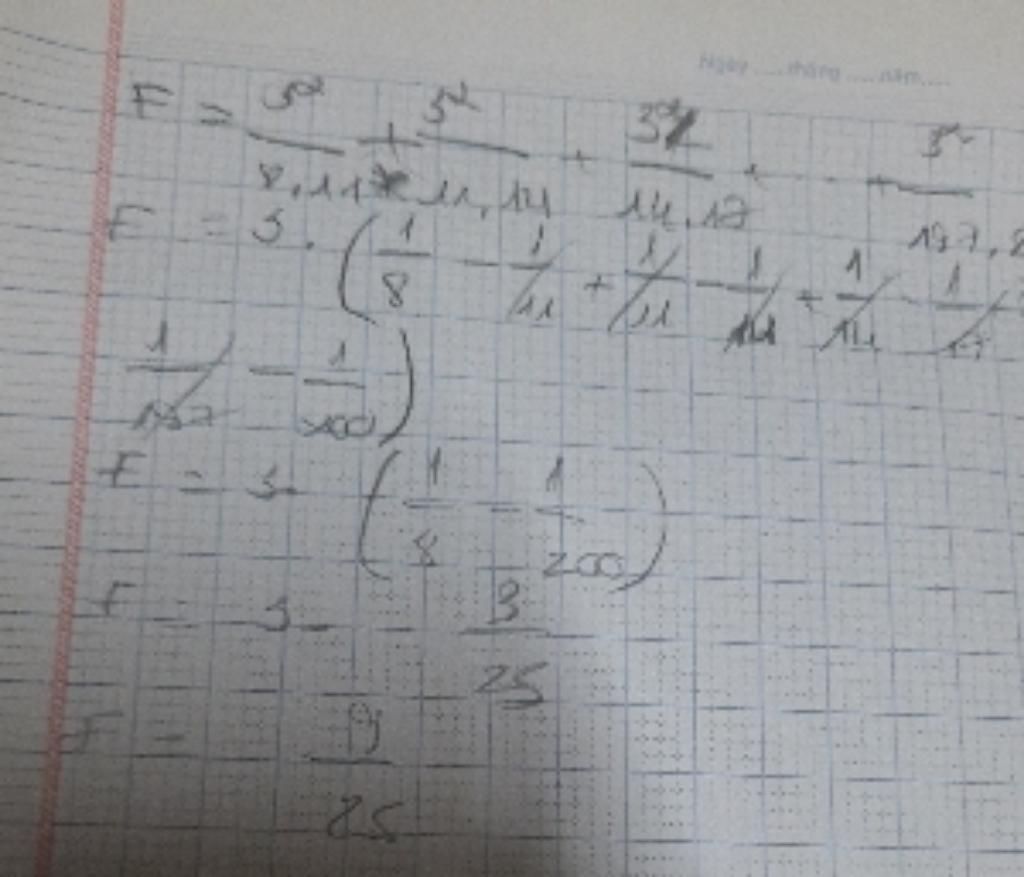 Ngày ..... tháng ..... năm.....
F = 3² / 8.11 + 3² / 11.14 + 3² / 14.17 + . . + 3² / 197.2
F = 3. ( 1/8 - 1/11 + 1/11 - 1/14 + 1/14 - 1/17
1/197 - 1/200 )
F = 3. ( 1/8 - 1/200 )
F = 3. 3/25
F = 9/25